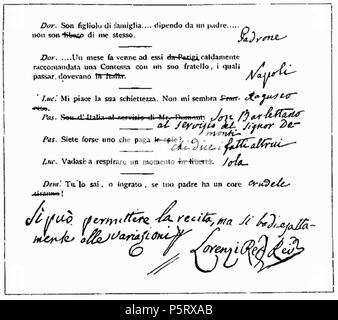 Dor. Son figliolo di famiglia.... dipendo da un padre....
non son libero di me stesso. Padrone
Dor. ....Un mese fa venne ad essi da Parigi caldamente
raccomandata una Contessa con un suo fratello, i quali
passar dovevano in Italia. Napoli
Luc. Mi piace la sua schiettezza. Non mi sembra Fran- Raguseo
cese.
Pas. Son d'Italia al servizio di Mr. Dumont. Son Barlettano
al servizio del Signor De-
monti
Pas. Siete forse uno che paga le spie? che dice i fatti altrui
Luc. Vadasi a respirare un momento in libertà. sola
Dem. Tu lo sai, o ingrato, se tuo padre ha un core crudele
tiranno!
Si può permettere la recita, ma si badi esatta-
mente alle variazioni
Lorenzi Reg. Rev.
P5RXAB